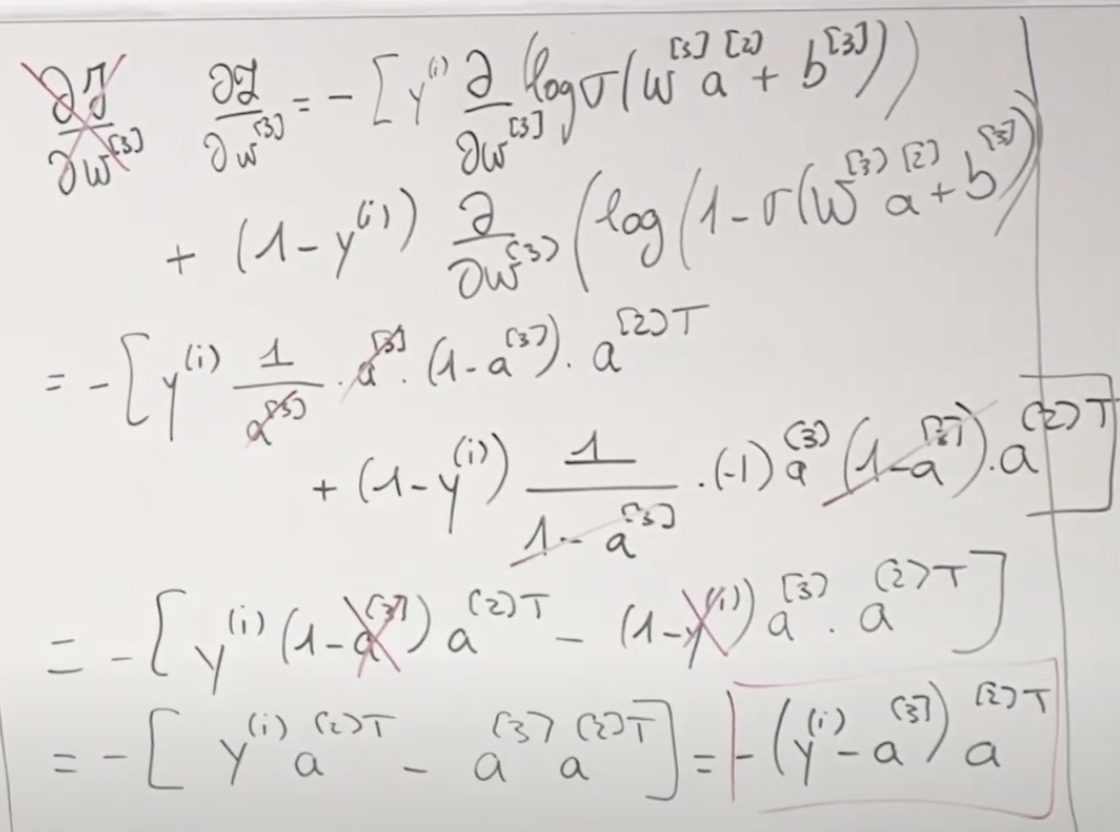 ∂J/∂w^[3] ∂L/∂w^[3] = - [ y^(i) ∂/∂w^[3] (log σ(w^[3] a^[2] + b^[3]))
+ (1 - y^(i)) ∂/∂w^[3] (log (1 - σ(w^[3] a^[2] + b^[3])
= - [ y^(i) 1/a^[3] · a^[3] · (1 - a^[3]) · a^[2]T
+ (1 - y^(i)) 1/(1 - a^[3]) · (-1) a^[3] (1 - a^[3]) · a^[2]T ]
= - [ y^(i) (1 - a^[3]) a^[2]T - (1 - y^(i)) a^[3] · a^[2]T ]
= - [ y^(i) a^[2]T - a^[3] a^[2]T ] = - (y^(i) - a^[3]) a^[2]T